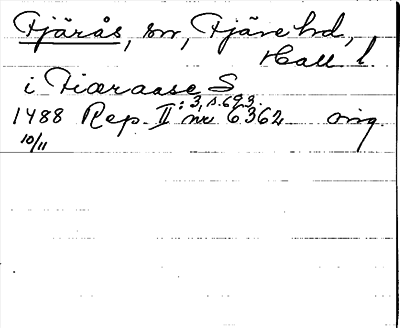 Fjärås, sn, Fjäre hd,
Hall l.
i Fiæraase S
1488 Rep. II:3, s.693. nr 6362 orig.
10/11